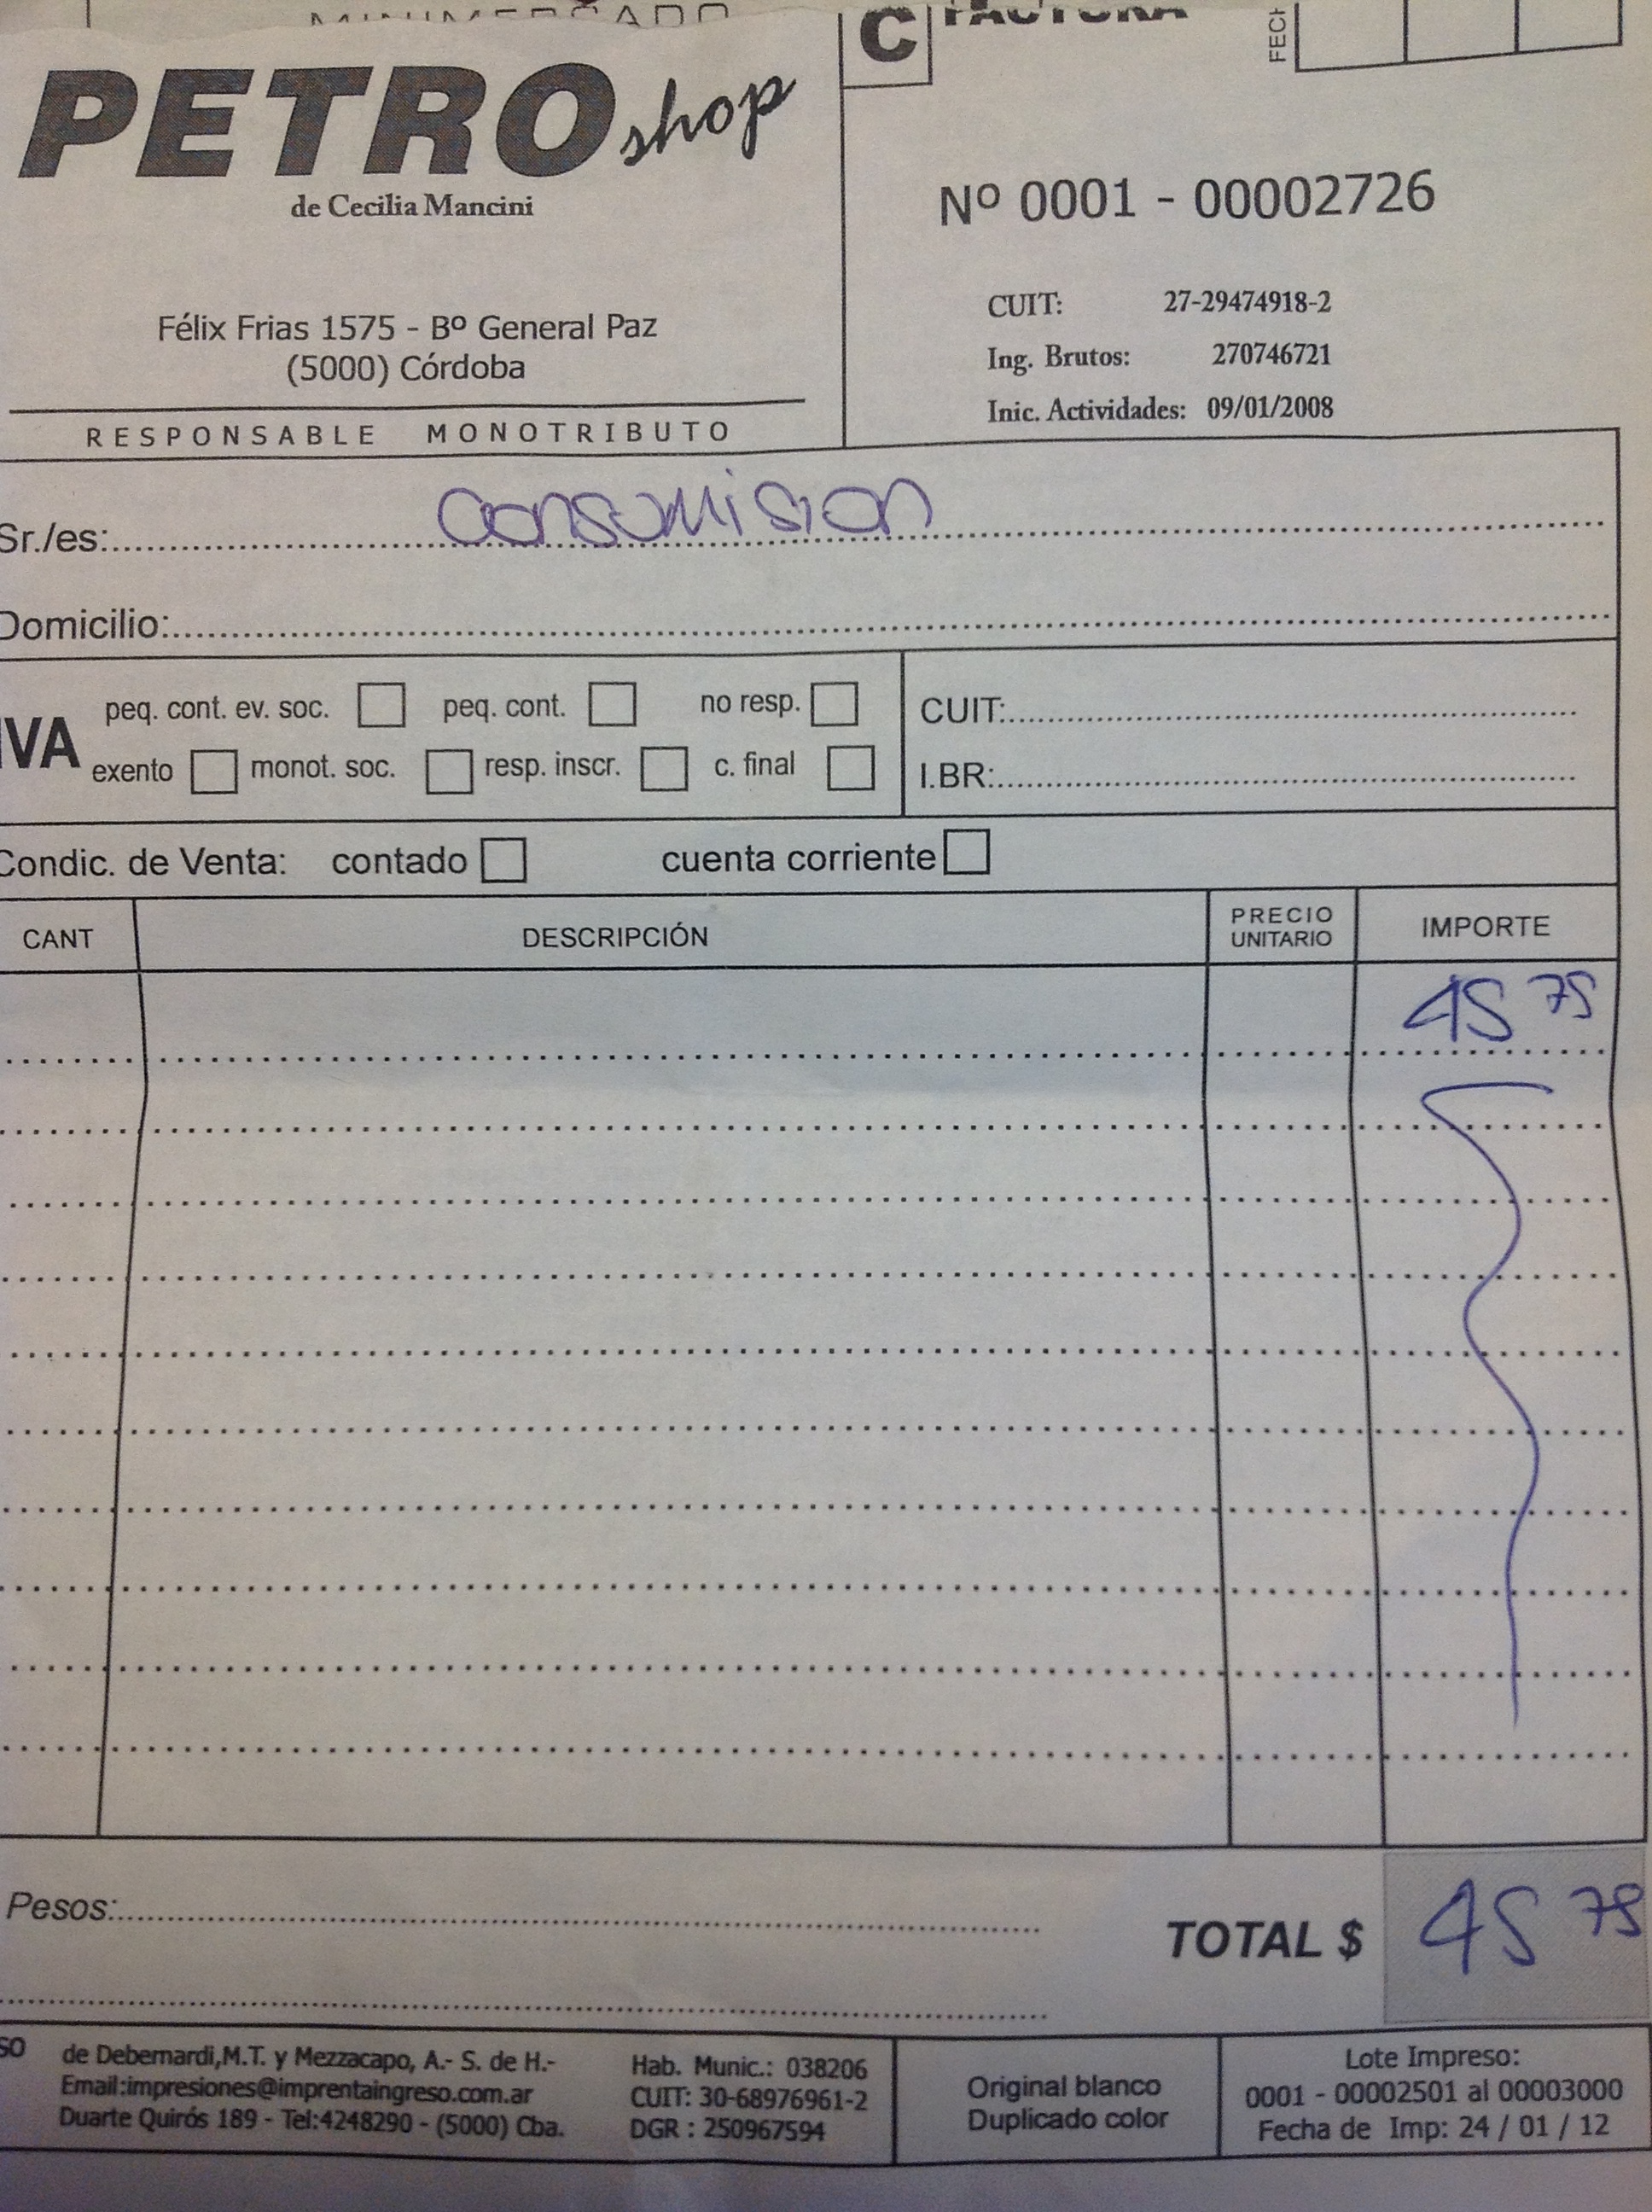 MINIMERCADO
PETRO shop
de Cecilia Mancini
Félix Frias 1575 - Bº General Paz
(5000) Córdoba
RESPONSABLE MONOTRIBUTO
C FACTURA
FECH
Nº 0001 - 00002726
CUIT: 27-29474918-2
Ing. Brutos: 270746721
Inic. Actividades: 09/01/2008
Sr./es: consumision
Domicilio:
IVA
peq. cont. ev. soc. peq. cont. no resp.
exento monot. soc. resp. inscr. c. final
CUIT:
I.BR:
Condic. de Venta: contado cuenta corriente
CANT DESCRIPCIÓN PRECIO UNITARIO IMPORTE
45 75
Pesos:
TOTAL $ 45 75
SO de Debernardi,M.T. y Mezzacapo, A.- S. de H.-
Email:impresiones@imprentaingreso.com.ar
Duarte Quirós 189 - Tel:4248290 - (5000) Cba.
Hab. Munic.: 038206
CUIT: 30-68976961-2
DGR : 250967594
Original blanco
Duplicado color
Lote Impreso:
0001 - 00002501 al 00003000
Fecha de Imp: 24 / 01 / 12